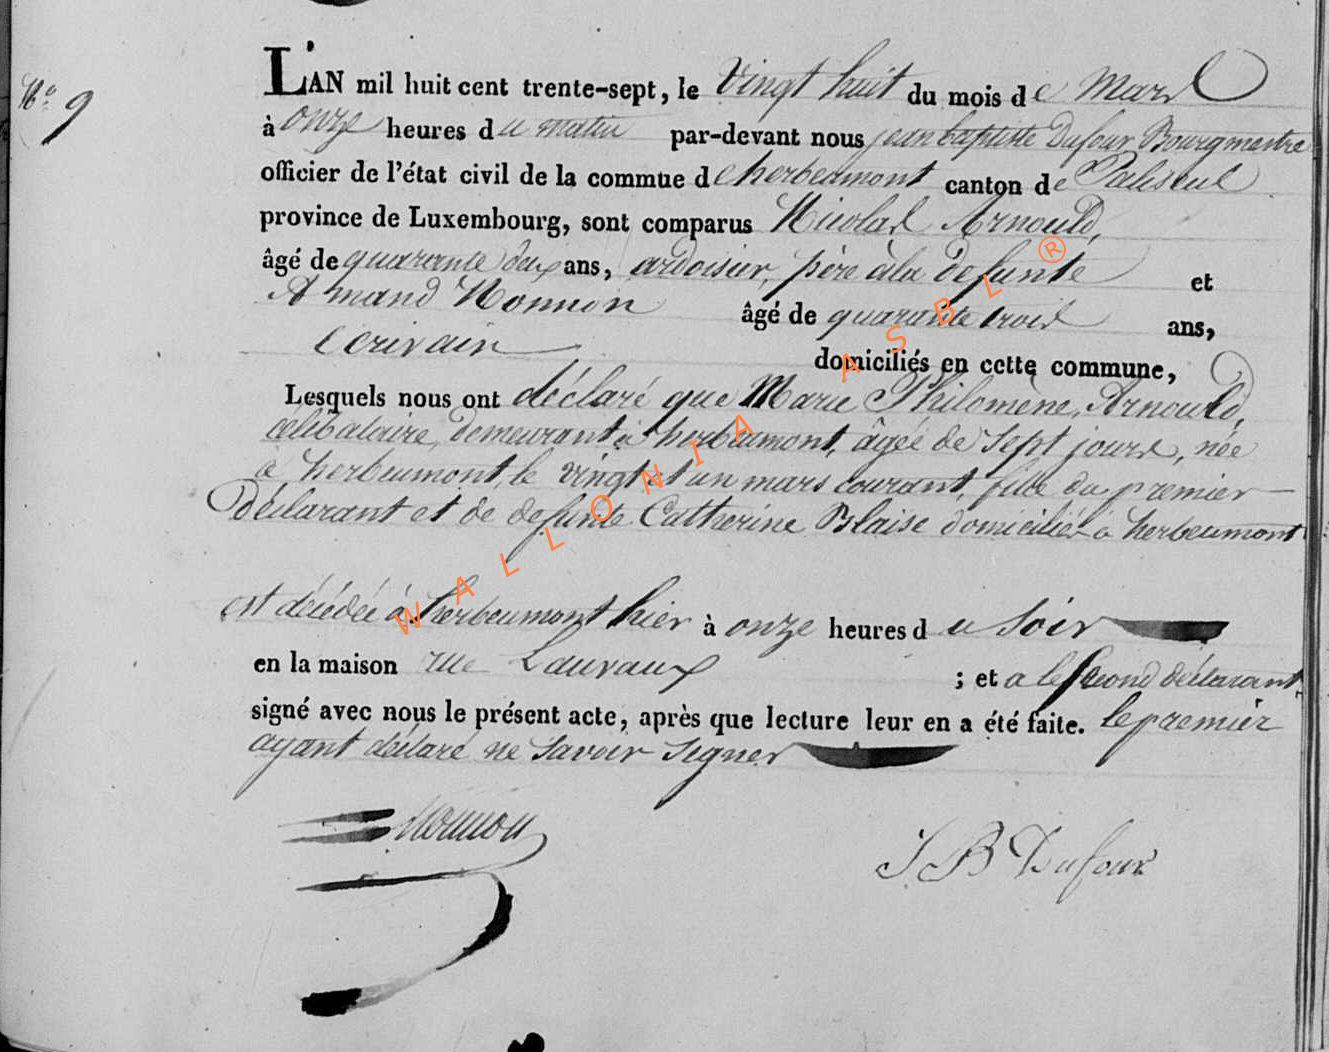 N.o 9
L'AN mil huit cent trente-sept, le Vingt huit du mois de Mars
à onze heures du matin par-devant nous jean baptiste Dufour Bourgmestre
officier de l'état civil de la commune de herbeumont canton de Paliseul
province de Luxembourg, sont comparus Nicolas Arnould,
âgé de quarante deux ans, ardoisier, père à la defunte et
Armand Monnon âgé de quarante trois ans,
Ecrivain domiciliés en cette commune,
Lesquels nous ont déclaré que Marie Philomène, Arnould,
célibataire, demeurant à herbeumont, âgée de Sept jours, née
à herbeumont, le vingt et un mars courant, fille du premier
Déclarant et de defunte Catherine Blaise domiciliés à herbeumont
est décédée à herbeumont hier à onze heures du Soir
en la maison rue Lauvaux ; et a le Second déclarant
signé avec nous le présent acte, après que lecture leur en a été faite. le premier
ayant déclaré ne Savoir Signer
Monnon
J B Dufour
WALLONIA ASBL ®